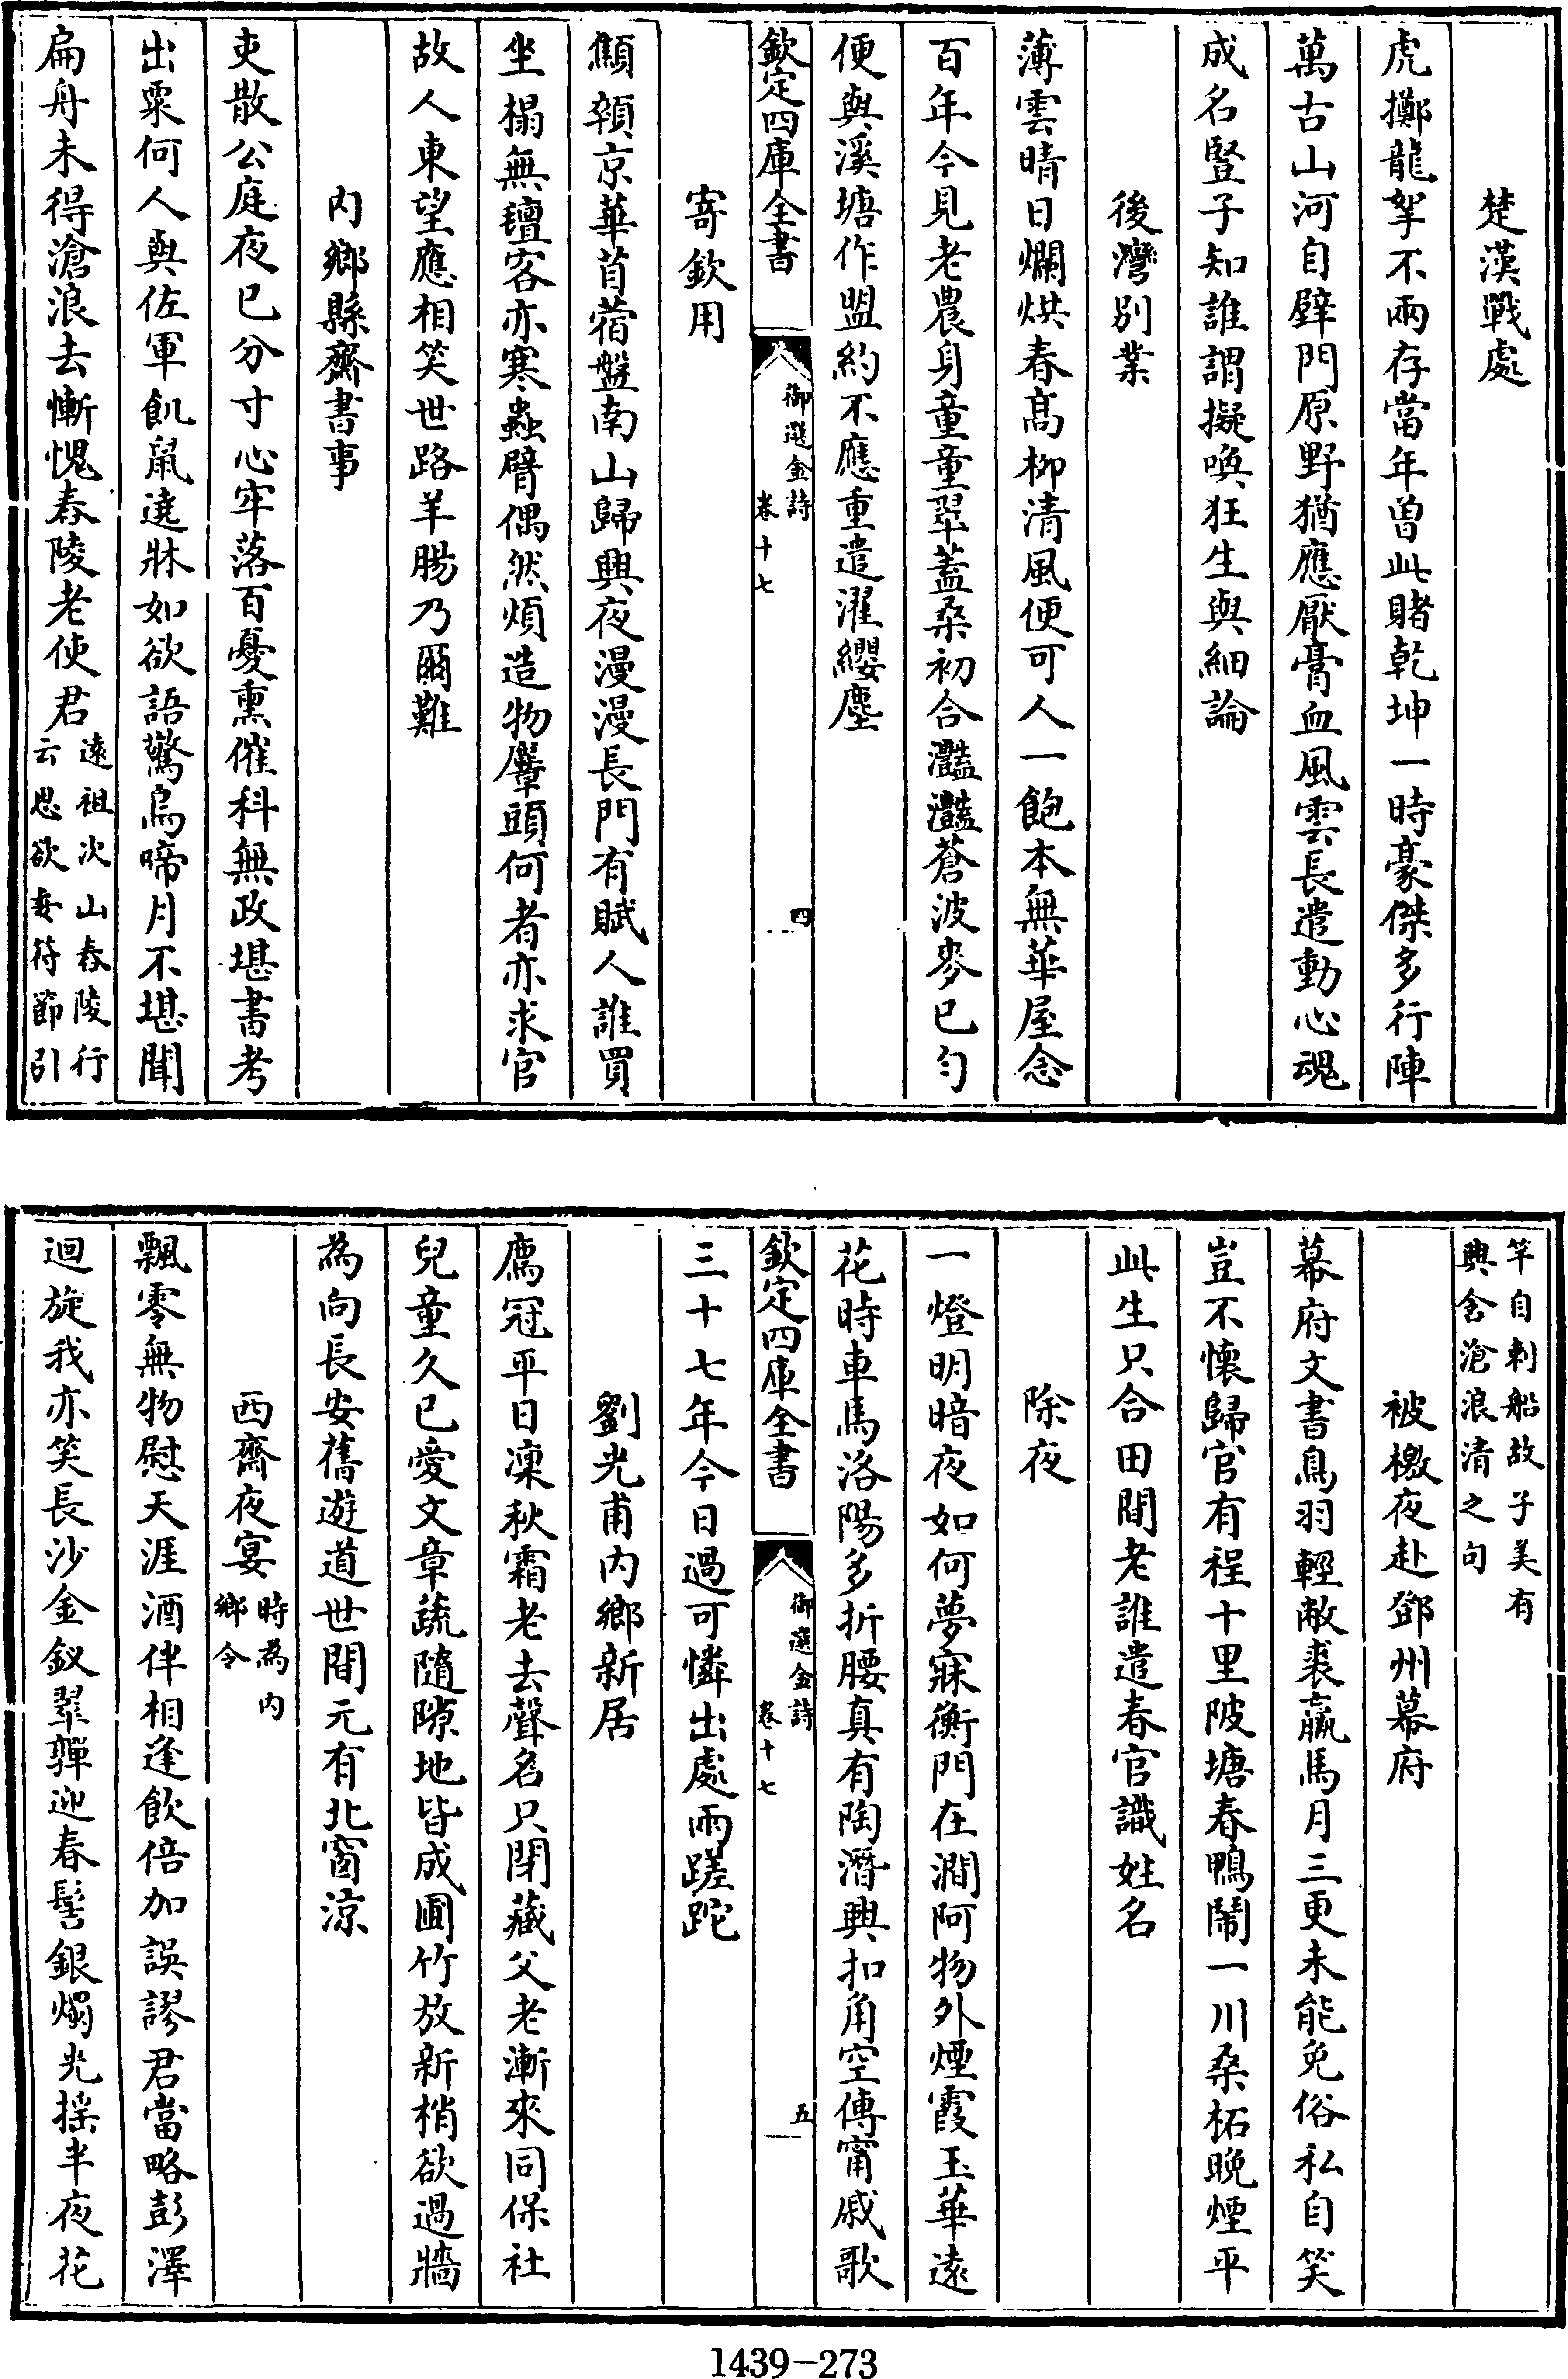 楚漢戰處
虎擲龍拏不兩存當年曾此賭乾坤一時豪傑多行陣
萬古山河自壁門原野猶應厭膏血風雲長遣動心魂
成名豎子知誰謂擬喚狂生與細論
後灣别業
薄雲晴日爛烘春髙柳清風便可人一飽本無華屋念
百年今見老農身童童翠蓋桑初合灩灩蒼波麥已勻
便與溪塘作盟約不應重遣濯纓塵
欽定四庫全書
御選金詩
卷十七
四
寄欽用
顦顇京華苜蓿盤南山歸興夜漫漫長門有賦人誰買
坐榻無氊客亦寒蟲臂偶然煩造物麞頭何者亦求官
故人東望應相笑世路羊腸乃爾難
内鄉縣齋書事
吏散公庭夜已分寸心牢落百憂熏催科無政堪書考
出粟何人與佐軍飢鼠遶牀如欲語驚烏啼月不堪聞
扁舟未得滄浪去慚愧舂陵老使君
逺祖次山舂陵行
云思欲委符節引
竿自刺船故子美有
興含滄浪清之句
被檄夜赴鄧州幕府
幕府文書鳥羽輕敝裘羸馬月三更未能免俗私自笑
豈不懷歸官有程十里陂塘春鴨鬧一川桑柘晚煙平
此生只合田間老誰遣春官識姓名
除夜
一燈明暗夜如何夢寐衡門在澗阿物外煙霞玉華逺
花時車馬洛陽多折腰真有陶潛興扣角空傳甯戚歌
欽定四庫全書
御選金詩
卷十七
五
三十七年今日過可憐出處兩蹉跎
劉光甫内鄉新居
廌冠平日凜秋霜老去聲名只閉藏父老漸來同保社
兒童久已愛文章蔬隨隙地皆成圃竹放新梢欲過牆
為向長安舊遊道世間元有北窗涼
西齋夜宴
時為内
鄉令
飄零無物慰天涯酒伴相逢飲倍加誤謬君當略彭澤
迴旋我亦笑長沙金釵翠嚲迎春髻銀燭光揺半夜花
1439-273